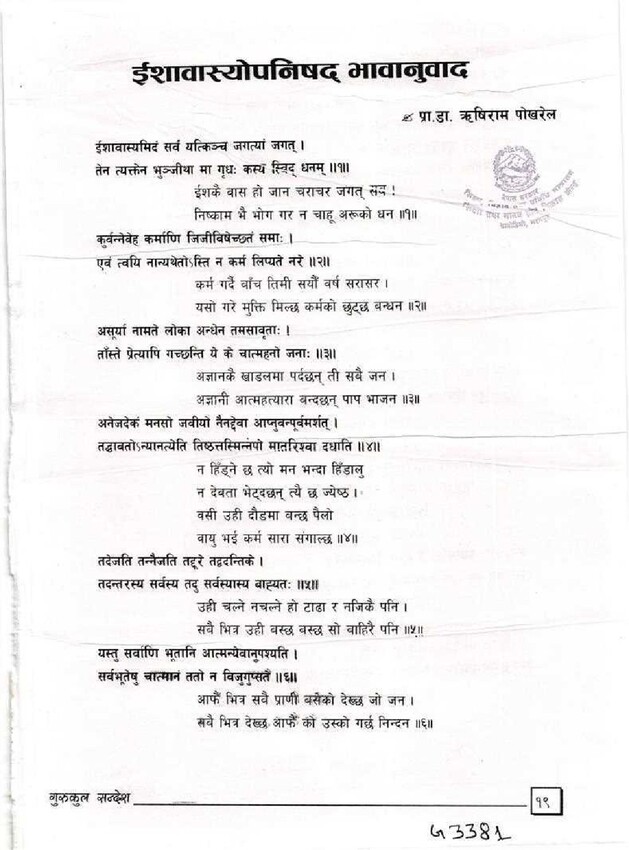 ईशावास्योपनिषद् भावानुवाद
✍ प्रा.डा. ऋषिराम पोखरेल
ईशावास्यमिदं सर्वं यत्किञ्च जगत्यां जगत् ।
तेन त्यक्तेन भुञ्जीथा मा गृधः कस्य स्विद् धनम् ॥१॥
ईशकै वास हो जान चराचर जगत् सब !
निष्काम भै भोग गर न चाहू अरूको धन ॥१॥
कुर्वन्नेवेह कर्माणि जिजीविषेच्छतं समाः ।
एवं त्वयि नान्यथेतोऽस्ति न कर्म लिप्यते नरे ॥२॥
कर्म गर्दै बाँच तिमी सयौं वर्ष सरासर ।
यसो गरे मुक्ति मिल्छ कर्मको छुट्छ बन्धन ॥२॥
असूर्या नामते लोका अन्धेन तमसावृताः ।
ताँस्ते प्रेत्यापि गच्छन्ति ये के चात्महनो जनाः ॥३॥
अज्ञानकै खाडलमा पर्दछन् ती सबै जन ।
अज्ञानी आत्महत्यारा बन्दछन् पाप भाजन ॥३॥
अनेजदेकं मनसो जवीयो नैनद्देवा आप्नुवन्पूर्वमर्शत् ।
तद्धावतोऽन्यानत्येति तिष्ठत्तस्मिन्नपो मातरिश्वा दधाति ॥४॥
न हिँड्ने छ त्यो मन भन्दा हिँडालु
न देवता भेट्दछन् त्यै छ ज्येष्ठ ।
बसी उही दौडमा बन्छ पैलो
वायु भई कर्म सारा संगाल्छ ॥४॥
तदेजति तन्नैजति तद्दूरे तद्वदन्तिके ।
तदन्तरस्य सर्वस्य तदु सर्वस्यास्य बाह्यतः ॥५॥
उही चल्ने नचल्ने हो टाढा र नजिकै पनि ।
सबै भित्र उही बस्छ बस्छ सो बाहिरै पनि ॥५॥
यस्तु सर्वाणि भूतानि आत्मन्येवानुपश्यति ।
सर्वभूतेषु चात्मानं ततो न विजुगुप्सते ॥६॥
आफैँ भित्र सबै प्राणी बसेको देख्छ जो जन ।
सबै भित्र देख्छ आफैँ को उस्को गर्छ निन्दन ॥६॥
गुरुकुल सन्देश
१९
G3381